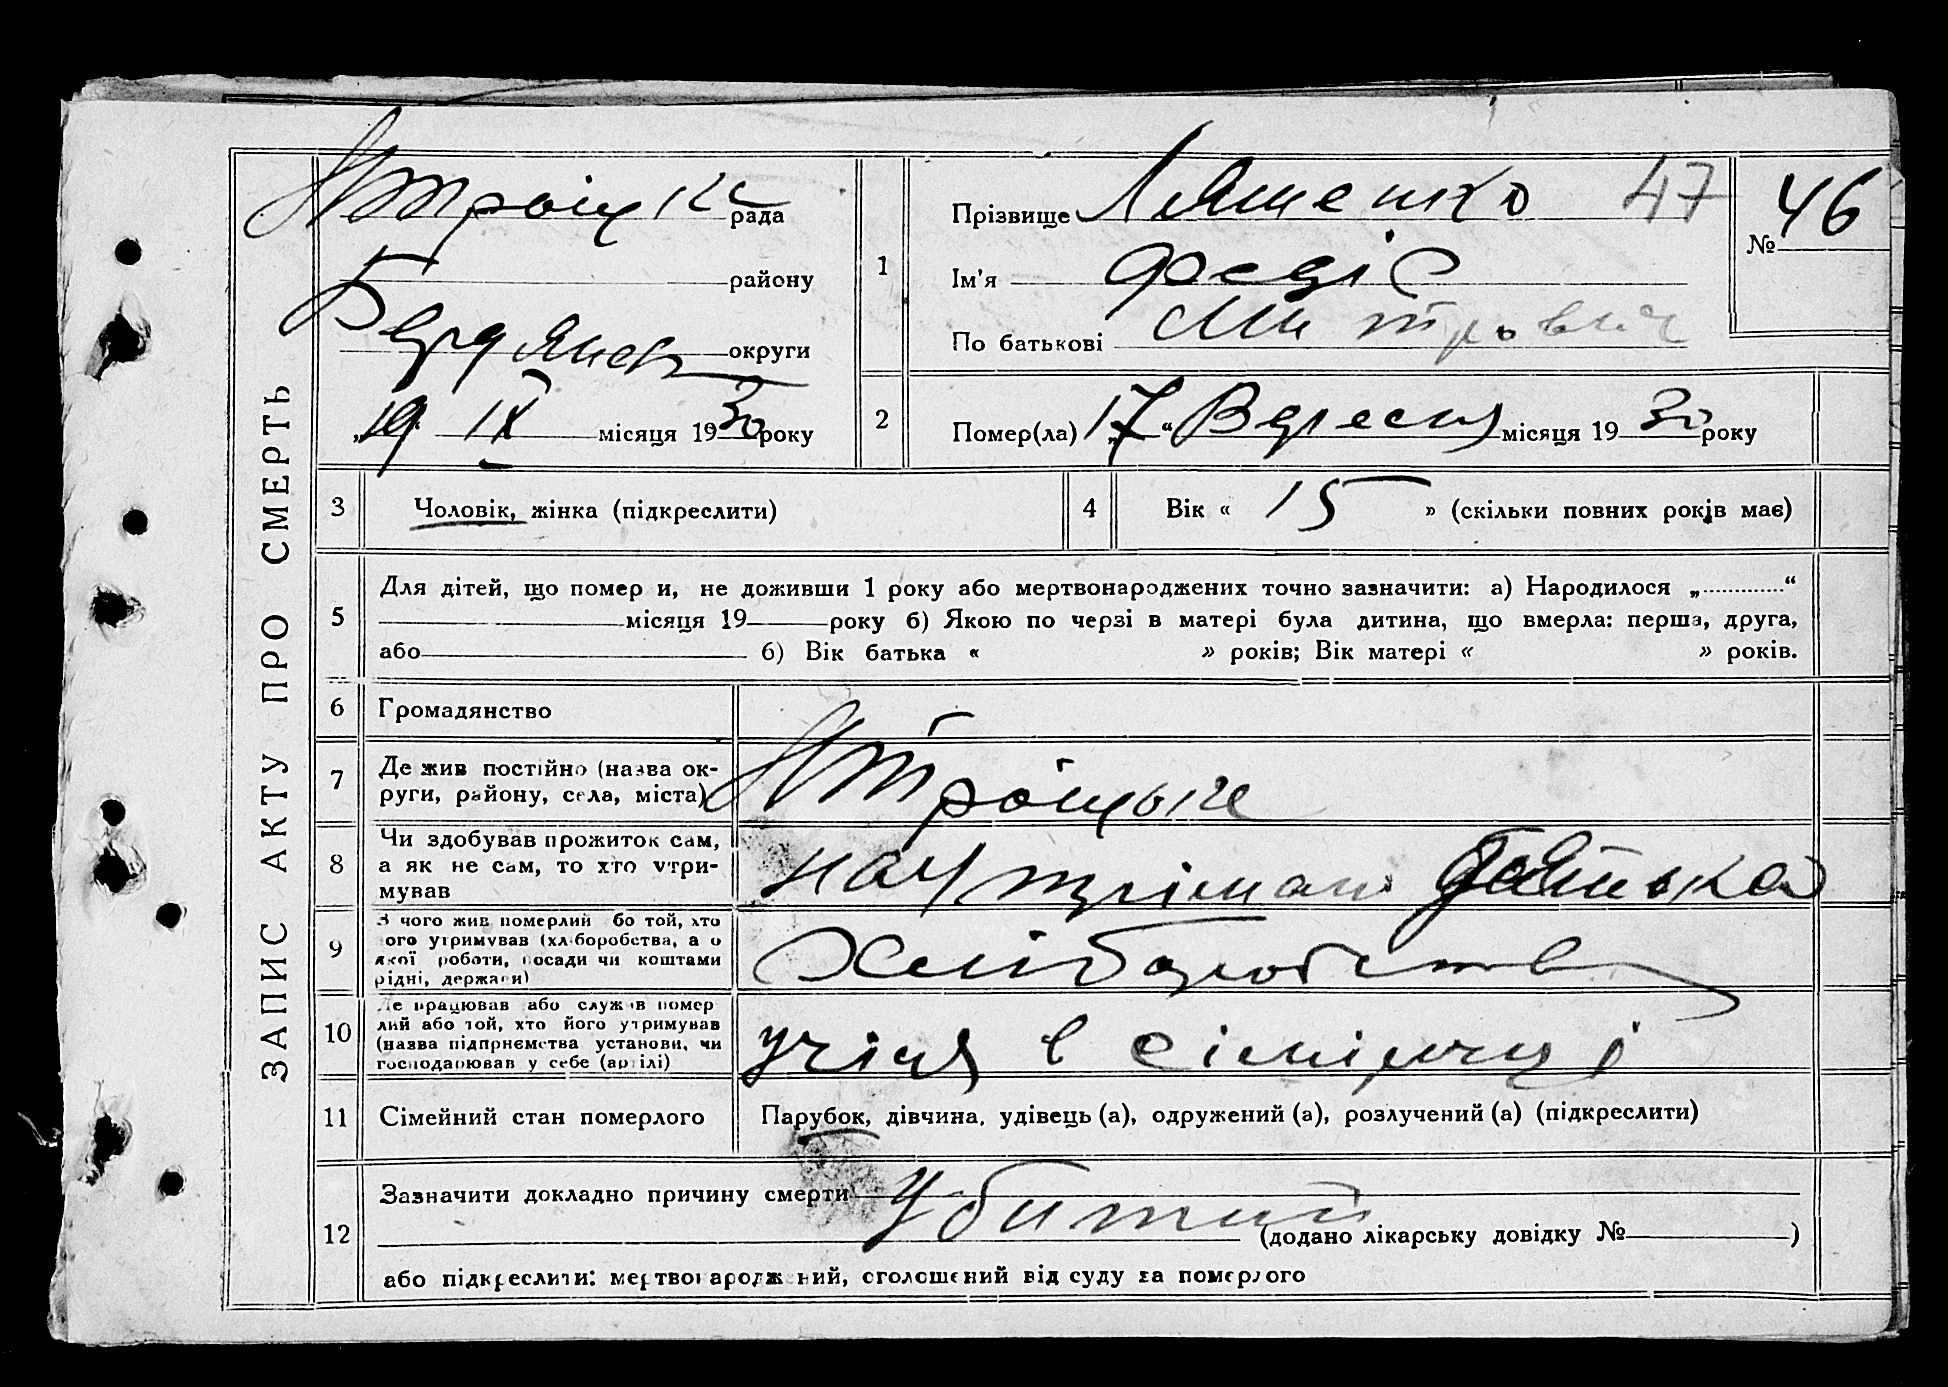 ЗАПИС АКТУ ПРО СМЕРТЬ
НТроіцьке рада
району
Бердянськ округи
„19“ IX місяця 1930 року
1
Прізвище Ляшенко 47
Ім'я Федіс
По батькові Митрович
№ 46
2
Помер(ла) „17“ Вересня місяця 1930 року
3 Чоловік, жінка (підкреслити)
4 Вік « 15 » (скільки повних років має)
5
Для дітей, що помер и, не доживши 1 року або мертвонароджених точно зазначити: а) Народилося „ “
місяця 19 року б) Якою по черзі в матері була дитина, що вмерла: перша, друга,
або б) Вік батька « » років; Вік матері « » років.
6 Громадянство
7 Де жив постійно (назва ок-
руги, району, села, міста) НТроіцьке
8 Чи здобував прожиток сам,
а як не сам, то хто утри-
мував
на утріманні батька
9 З чого жив померлий бо той, хто
ого утримував (хл боробства, а о
якої роботи, посади чи коштами
рідні, держави)
Хліборобство
10 Де працював або служив помер
лий або той, хто його утримував
(назва підприємства установи, чи
господарював у себе (артілі)
11 Сімейний стан померлого
Парубок, дівчина, удівець (а), одружений (а), розлучений (а) (підкреслити)
12
Зазначити докладно причину смерти Убитий
(додано лікарську довідку № )
або підкреслити: мертвонароджений, оголошений від суду за померлого